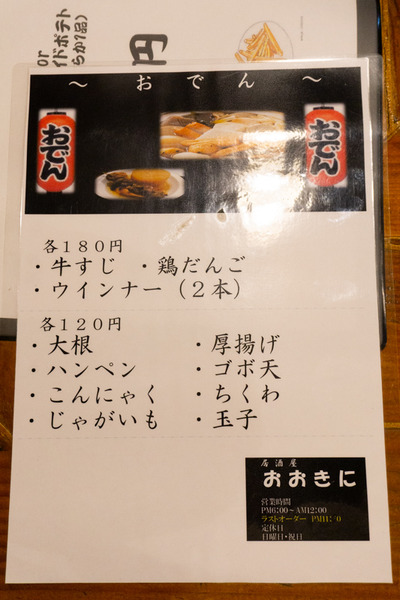 or
イドポテト
らか1品)
円
～ おでん ～
おでん
おでん
各１８０円
・牛すじ ・鶏だんご
・ウインナー（２本）
各１２０円
・大根 ・厚揚げ
・ハンペン ・ゴボ天
・こんにゃく ・ちくわ
・じゃがいも ・玉子
居酒屋
おおきに
営業時間
PM6:00～AM12:00
ラストオーダー PM11:
定休日
日曜日・祝日